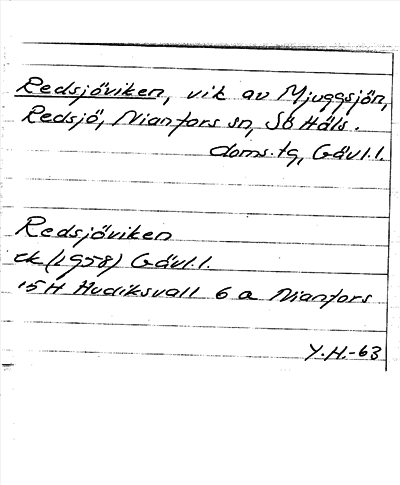 Redsjöviken, vik av Mjuggsjön,
Redsjö, Nianfors sn, Sö Häls.
doms.tg, Gävl.l.
Redsjöviken
ek (1958) Gävl.l.
15H Hudiksvall 6 a Nianfors
Y.H.-63